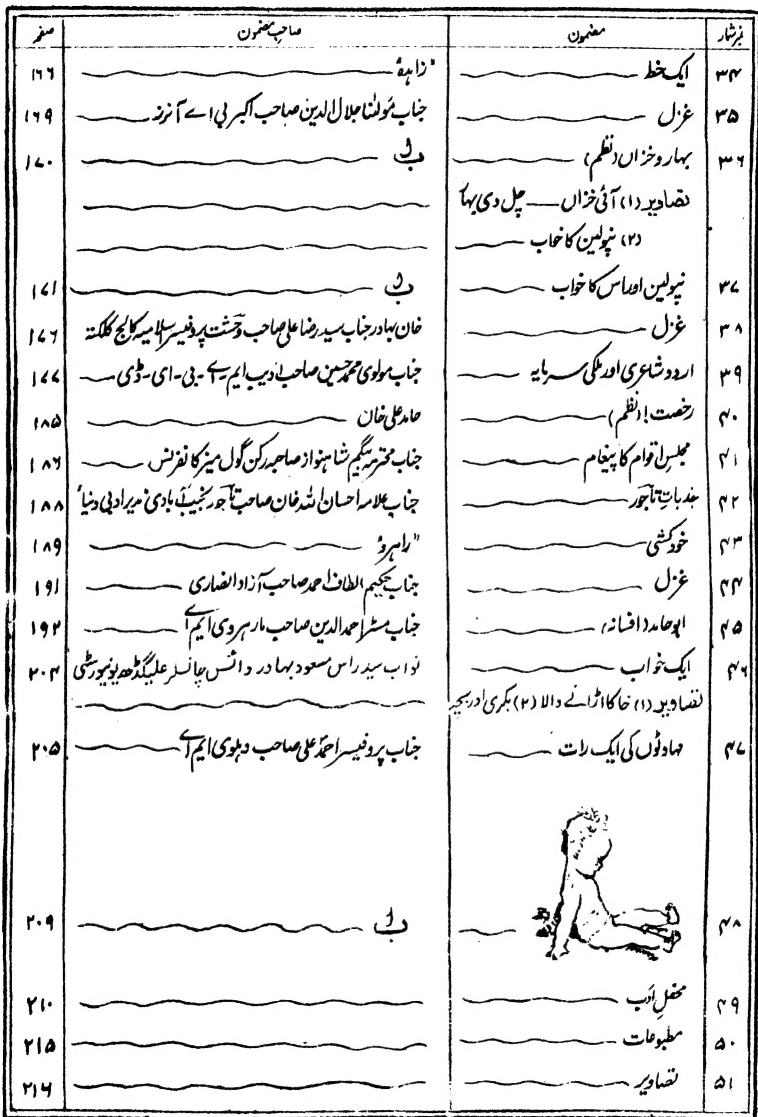 نمبرشمار مضمون صاحب مضمون صفحہ
۳۴ ایک خط "زاہدہ" ۱۶۶
۳۵ غزل جناب مولٰنا جلال الدین صاحب اکبر بی اے آنرز ۱۶۹
۳۶ بہار و خزاں (نظم) ۱۷۰
تصاویر (۱) آئی خزاں — چل دی بہار
(۲) نپولین کا خواب
۳۷ نپولین اور اس کا خواب ۱۷۱
۳۸ غزل خان بہادر جناب سید رضا علی صاحب وحشت پروفیسر اسلامیہ کالج کلکتہ ۱۷۶
۳۹ اردو شاعری اور ملکی سرمایہ جناب مولوی محمد حسین صاحب ادیب ایم-اے-بی-ای-ڈی ۱۷۷
۴۰ رخصت! (نظم) حامد علی خان ۱۸۵
۴۱ مجلسِ اقوام کا پیغام جناب محترمہ بیگم شاہنواز صاحبہ رکن گول میز کانفرنس ۱۸۶
۴۲ جذباتِ تاجور جناب علامہ احسان اللہ خان صاحب تاجور نجیب آبادی مدیر ادبی دنیا ۱۸۸
۴۳ خودکشی "راہرو" ۱۸۹
۴۴ غزل جناب حکیم الطاف احمد صاحب آزاد انصاری ۱۹۱
۴۵ ابو حامد (افسانہ) جناب مسٹر احمد الدین صاحب مارہروی ایم اے ۱۹۲
۴۶ ایک خواب نواب سید راس مسعود بہادر وائس چانسلر علیگڈھ یونیورسٹی ۲۰۴
تصاویر (۱) خاکا اڑانے والا (۲) بکری اور بچہ
۴۷ مہاوٹوں کی ایک رات جناب پروفیسر احمد علی صاحب دہلوی ایم اے ۲۰۵
۴۸ ۲۰۹
۴۹ محفلِ ادب ۲۱۰
۵۰ مطبوعات ۲۱۵
۵۱ تصاویر ۲۱۶